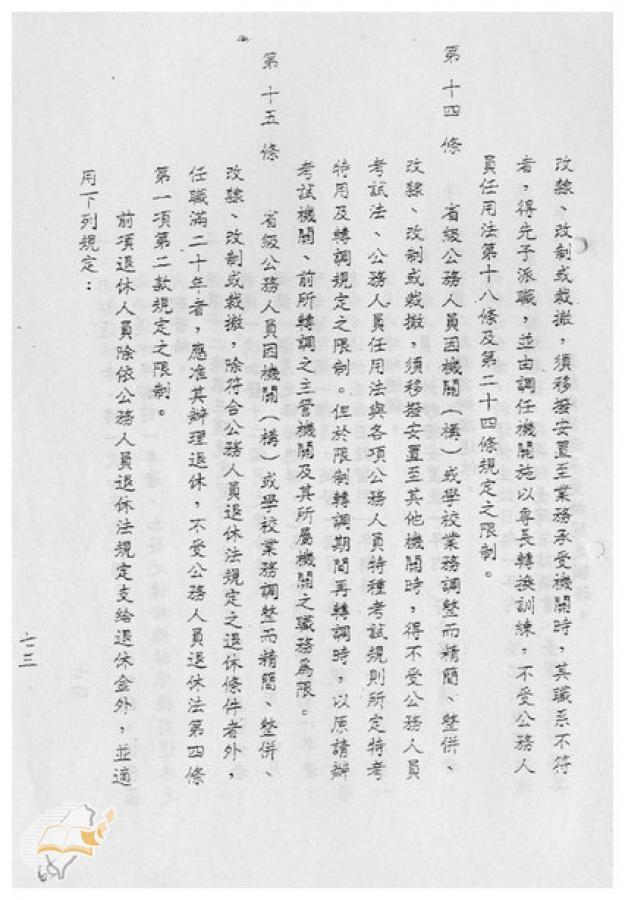 改隸、改制或裁撤，須移撥安置至業務承受機關時，其職系不符
者，得先予派職，並由調任機關施以專長轉換訓練，不受公務人
員任用法第十八條及第二十四條規定之限制。
第十四條
省級公務人員因機關（構）或學校業務調整而精簡、整併、
改隸、改制或裁撤，須移撥安置至其他機關時，得不受公務人員
考試法、公務人員任用法與各項公務人員特種考試規則所定特考
特用及轉調規定之限制。但於限制轉調期間再轉調時，以原請辦
考試機關、前所轉調之主管機關及其所屬機關之職務為限。
第十五條
省級公務人員因機關（構）或學校業務調整而精簡、整併、
改隸、改制或裁撤，除符合公務人員退休法規定之退休條件者外，
任職滿二十年者，應准其辦理退休，不受公務人員退休法第四條
第一項第二款規定之限制。
前項退休人員除依公務人員退休法規定支給退休金外，並適
用下列規定：
七三